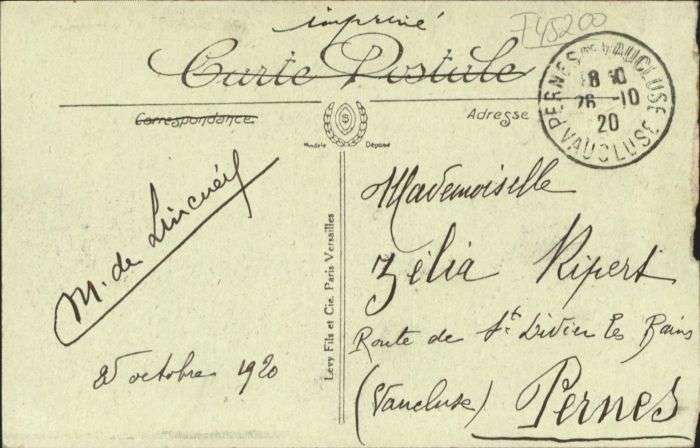 imprimé
F45200
Carte Postale
Correspondance
Adresse
PERNES VAUCLUSE
18 30
26 -10
20
VAUCLUSE
Modèle Déposé
Levy Fils et Cie. Paris Versailles
M. de
25 octobre 1920
Mademoiselle
Zélia Ripert
Route de St Didier les Bains
(Vaucluse) Pernes